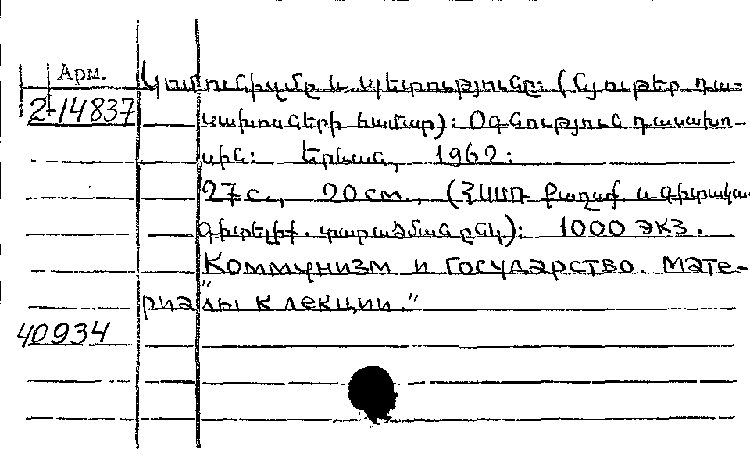 Арм.
2-14837
Կոմունիզմը և պետությունը: (Նյութեր դա-
սախոսների համար): Օգնություն դասախո-
սին: Երևան, 1962:
27 с., 20 см., (ՀՍՍՌ քաղաք. և գիտական
գիտելիք. տարածման ընկ): 1000 экз.
"Коммунизм и государство. Мате-
риалы к лекции."
40934